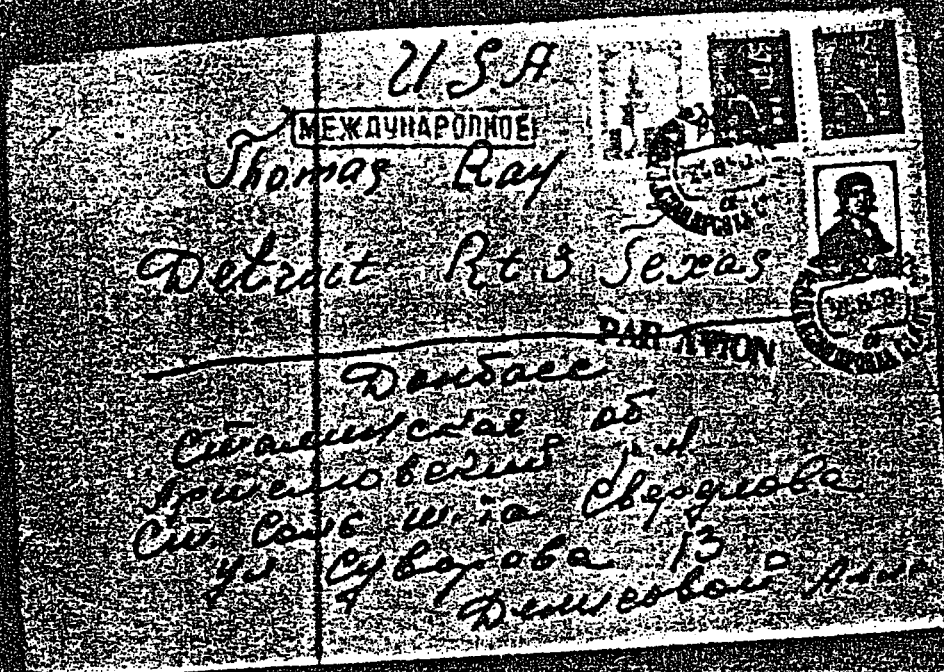 USA
МЕЖДУНАРОДНОЕ
Thomas Ray
Detroit Rt 3 Texas
PAR AVION
Донбасс
Сталинская об
Артемовский р-н
Ст Соль ш-та Свердлова
ул Суворова 13
Денисовой Анне